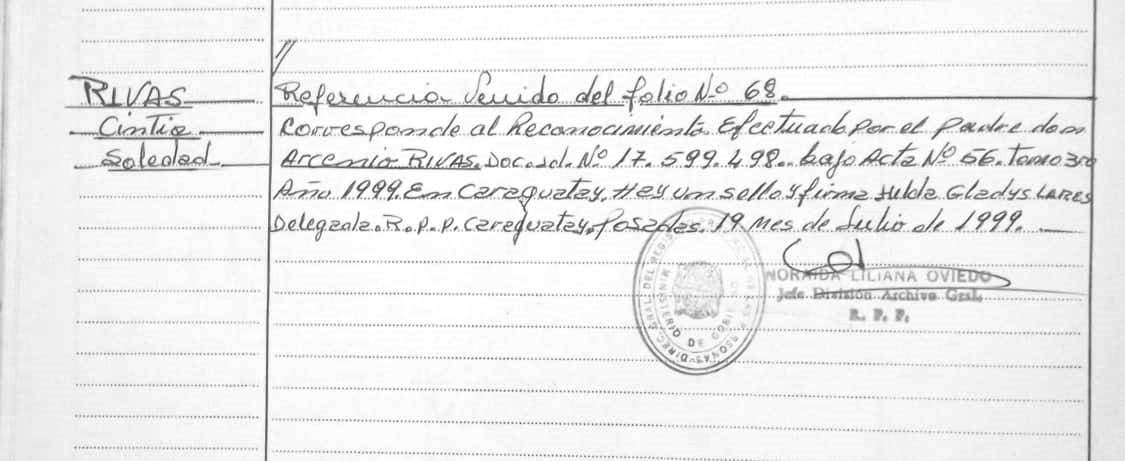 //
RIVAS
Cintia
Soledad
Referencia Venido del folio Nº 68.
Corresponde al Reconocimiento Efectuado por el padre don
Arcenio RIVAS. Doc. Id. Nº 17.599.498.. bajo Acta Nº 56. Tomo 3ro
Año 1999. En Caraguatay. Hay un sello y firma Hilda Gladys LARES
Delegada. R.P.P. Caraguatay. Posadas. 19 Mes de Julio de 1999.
NORAIDA LILIANA OVIEDO
Jefe División Archivo Gral.
R. P. P.
DIREC. GRAL. DEL REGIST. PROV. DE LAS PERSONAS
MINISTERIO DE GOBIERNO